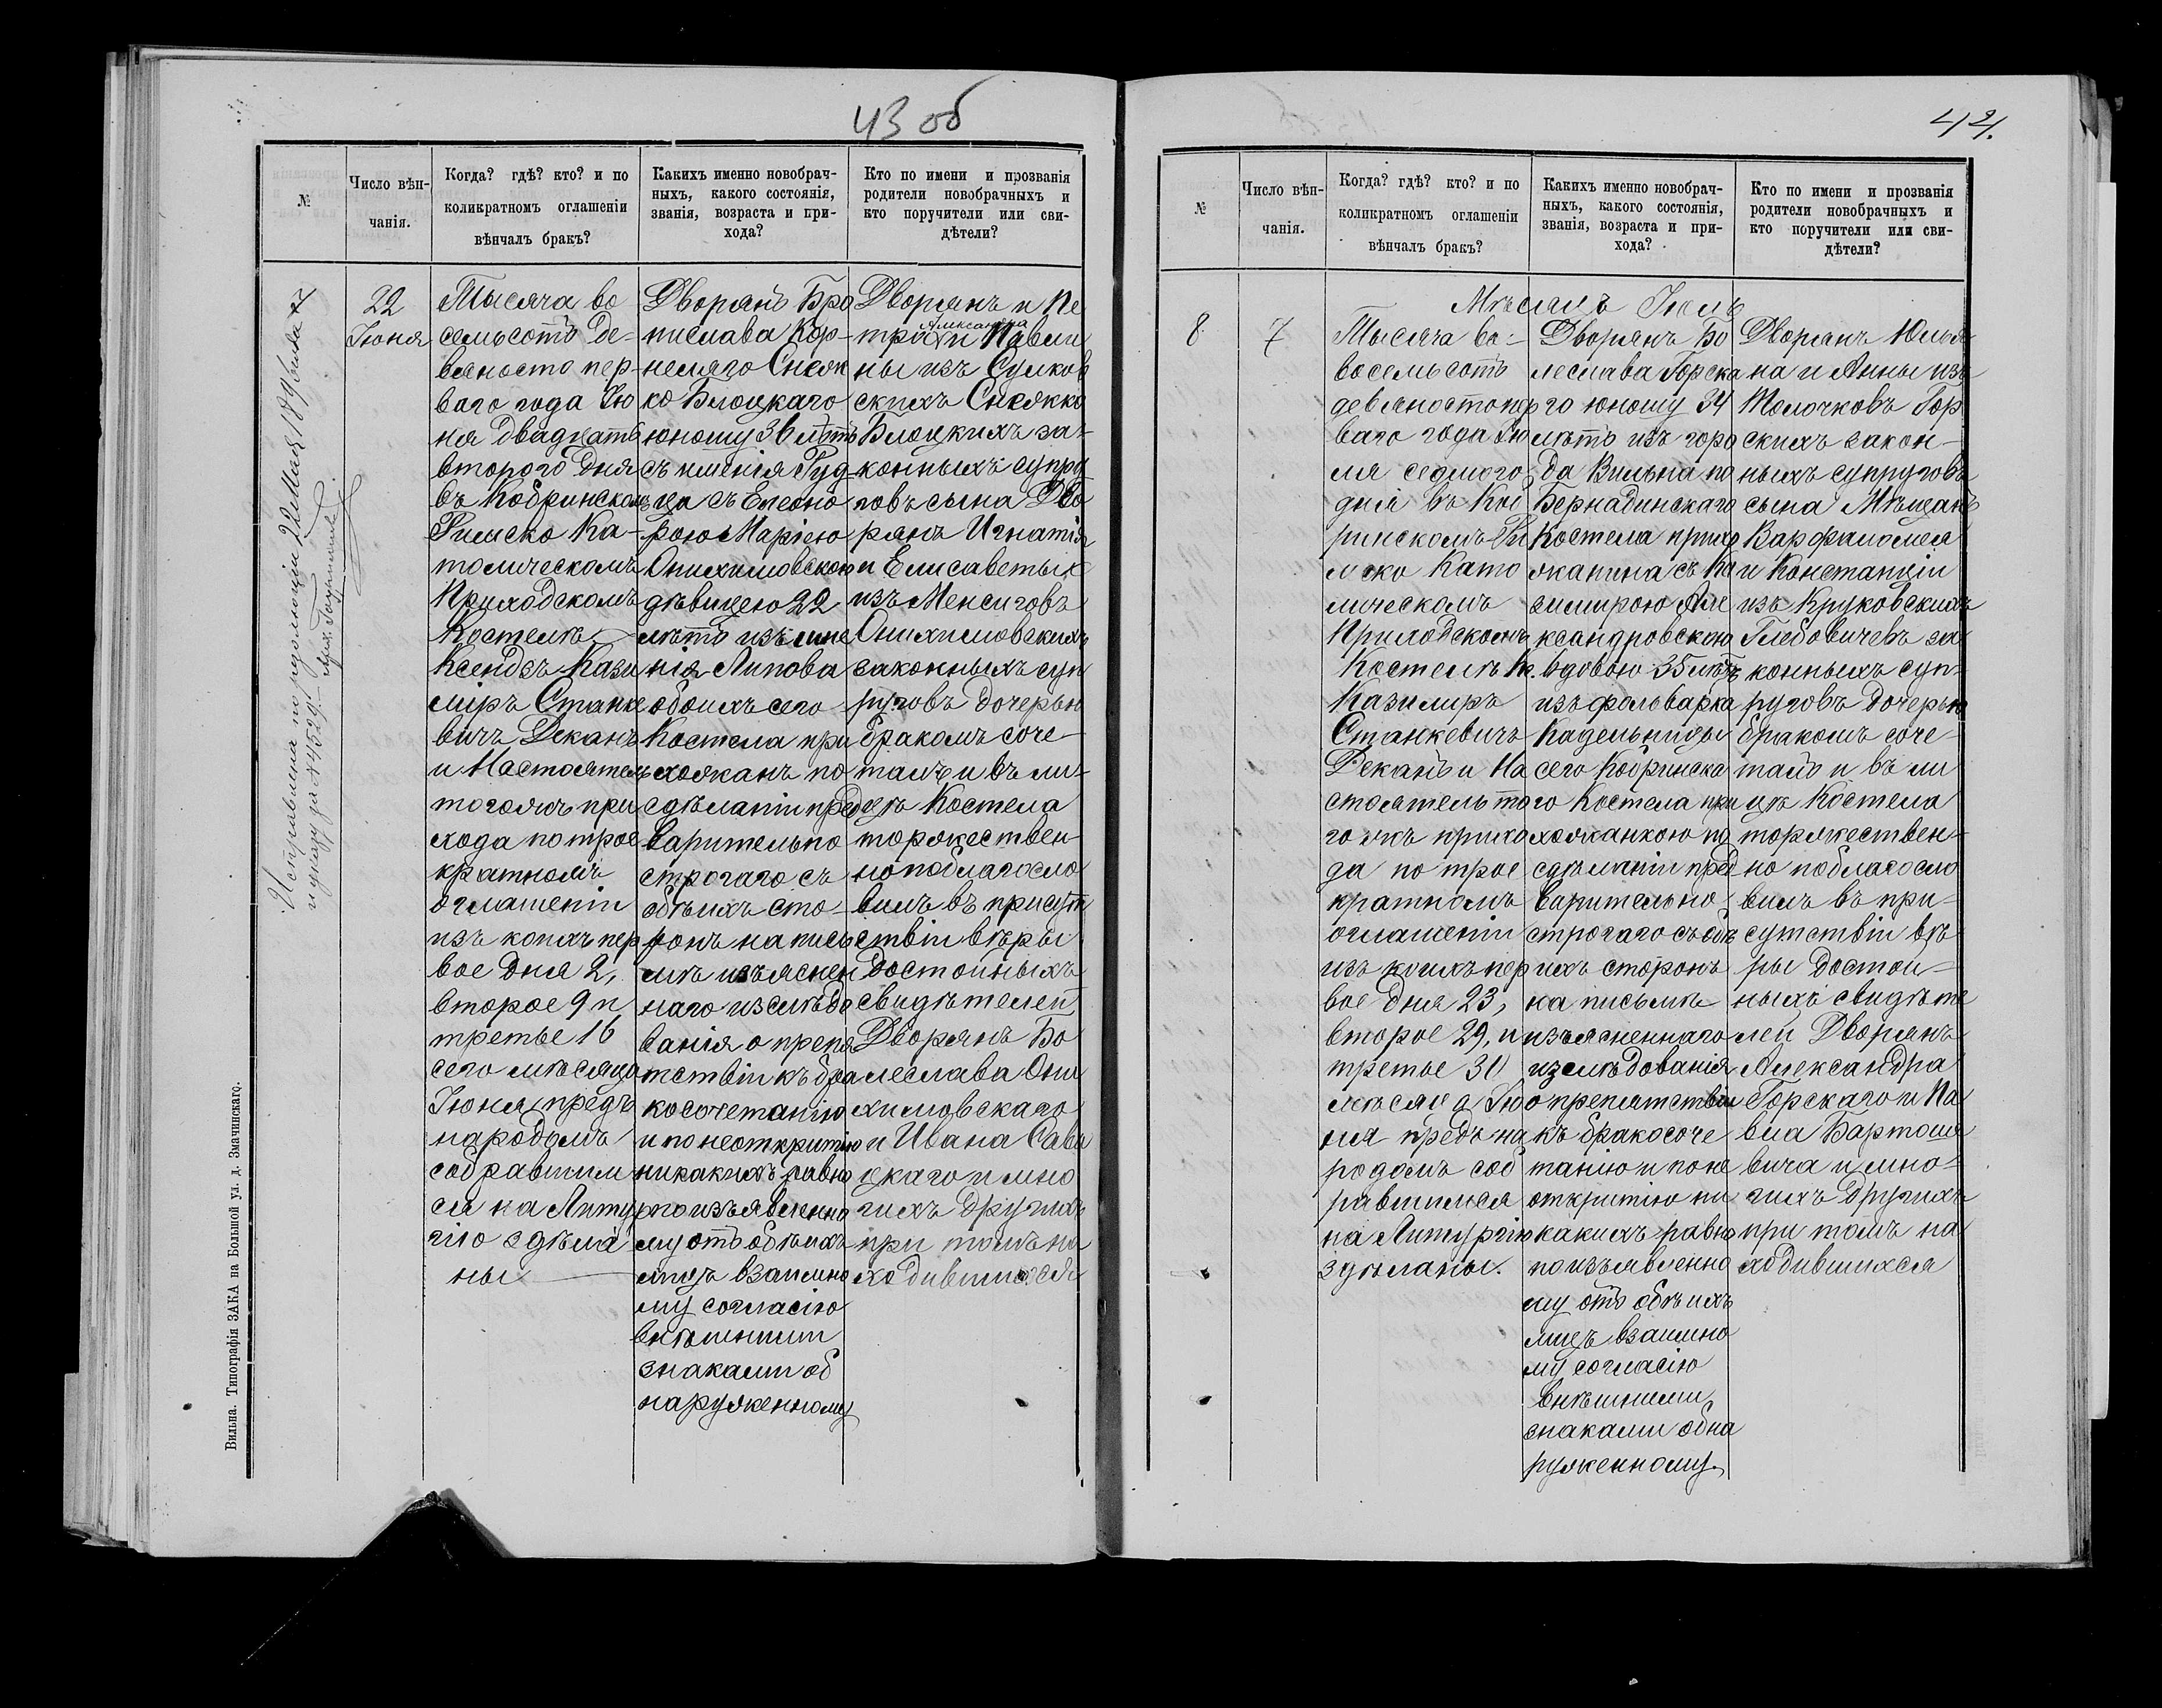 43 об
№
Число вѣн-
чанія.
Когда? гдѣ? кто? и по
коликратномъ оглашеніи
вѣнчалъ бракъ?
Какихъ именно новобрач-
ныхъ, какого состоянія,
званія, возраста и при-
хода?
Кто по имени и прозванія
родители новобрачныхъ и
кто поручители или сви-
дѣтели?
7
22
Іюня
Тысяча во
семьсотъ де-
вяносто пер-
ваго года Ію
ня двадцать
второго дня
въ Кобринскомъ
Римско Ка-
толическомъ
Приходскомъ
Костелѣ
Ксендзъ Кази
міръ Станке
вичъ Деканъ
и Настоятель
тогожъ при
хода по трое
кратномъ
оглашеніи
изъ коихъ пер
вое дня 2,
второе 9 и
третье 16
сего мѣсяца
Іюня предъ
народомъ
собравшим
ся на Литур
гію здѣла
ны
Дворянъ Бро
нислава Кор-
нелаго Снеж
ко Блоцкаго
юношу 36 лѣтъ
съ имѣнія Руд
ца съ Елеоно
рою Маріею
Онихимовскою
дѣвицею 22
лѣтъ изъ имѣ
нія Липова
обоихъ сего
Костела при
хожанъ по
сдѣланіи пред
варительно
строгаго съ
обѣихъ сто-
ронъ на пись
мѣ изъяснен
наго изслѣдо
ванія о препя
тствіи къ бра
косочетанію
и по неоткритію
никакихъ равно
по изъявленно
му отъ обѣихъ
лицъ взаимно
му согласію
внѣшними
знаками об
наруженному
Дворянъ и Пе
тра Александра и Павли
ны изъ Сулков
скихъ Снежко
Блоцкихъ за-
конныхъ супру
говъ сына Дво
рянъ Игнатія
и Елисаветы
изъ Менсиговъ
Онихимовскихъ
законныхъ суп
руговъ дочерью
бракомъ соче-
талъ и въ ли-
цѣ Костела
торжествен-
но поблагосло
вилъ въ присут
ствіи вѣры
достойныхъ
свидѣтелей
Дворянъ Бо
леслава Они
химовскаго
и Ивана Сави
цкаго и мно
гихъ другихъ
при томъ на
ходившихся
Вильна. Типографія ЗАКА на Большой ул. д. Змачинскаго.
44.
№
Число вѣн-
чанія.
Когда? гдѣ? кто? и по
коликратномъ оглашеніи
вѣнчалъ бракъ?
Какихъ именно новобрач-
ныхъ, какого состоянія,
званія, возраста и при-
хода?
Кто по имени и прозванія
родители новобрачныхъ и
кто поручители или сви-
дѣтели?
Мѣсяцъ Іюль
8
7
Тысяча во-
восемьсотъ
девяносто пер
ваго года Ію
ля седмого
дня въ Коб
ринскомъ Ри
мско Като
лическомъ
Приходскомъ
Костелѣ К.
Казимиръ
Станкевичъ
Деканъ и На
стоятель то
гожъ прихо
да по трое
кратномъ
оглашеніи
изъ коихъ пер
вое дня 23,
второе 29, и
третье 30
мѣсяца Ію
ня предъ на
родомъ соб
равшимся
на Литургію
здѣланы.
Дворянъ Бо
леслава Горска
го юношу 34
лѣтъ изъ горо
да Вильна по
Бернадинскаго
Костела прихо
жанина съ Ка
зимирою Але
ксандровскою
вдовою 35 лѣтъ
изъ фольварка
Кадельницы
сего Кобринска
го Костела при
хожанкою по
сдѣланіи пред
варительно
строгаго съ обѣ
ихъ сторонъ
на письмѣ
изъясненнаго
изслѣдованія
о препятствіи
къ бракосоче
танію и поне
открытію ни
какихъ равно
по изъявленно
му отъ обѣихъ
лицъ взаимно
му согласію
внѣшними
знаками обна
руженному.
Дворянъ Юлья
на и Анны изъ
Толочковъ Гор
скихъ закон-
ныхъ супруговъ
сына Мѣщанъ
Варфаломея
и Констанціи
изъ Круковскихъ
Глебовичевъ за
конныхъ суп-
руговъ дочерью
бракомъ соче-
талъ и въ ли
цѣ Костела
торжествен-
но поблагосло
вилъ въ при-
сутствіи вѣ-
ры достой-
ныхъ свидѣте
лей Дворянъ
Александра
Горскаго и Па
вла Бартоше
вича и мно-
гихъ другихъ
при томъ на
ходившихся